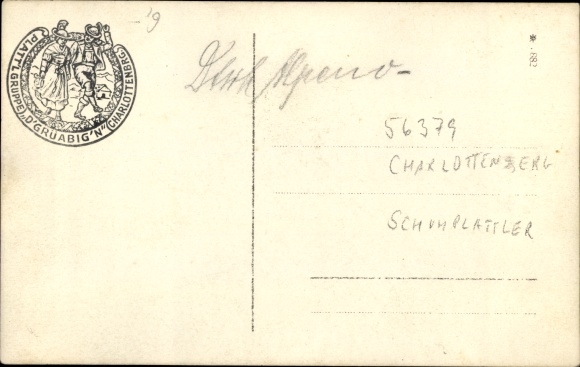 PLATTLGRUPPE „D'GRUABIG'N" CHARLOTTENBRG.
-'9
* .882
56379
CHARLOTTENBERG
SCHUHPLATTLER